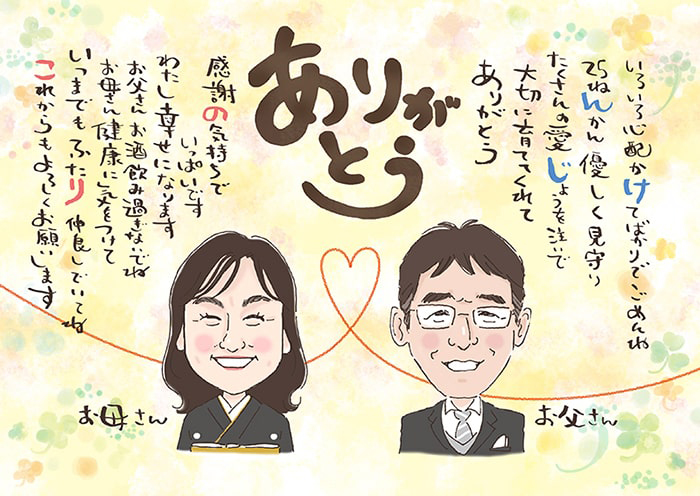 ありがとう
いろいろ心配かけてばかりでごめんね
25ねんかん優しく見守り
たくさんの愛じょうを注いで
大切に育ててくれて
ありがとう
感謝の気持ちで
いっぱいです
わたし幸せになります
お父さんお酒飲み過ぎないでね
お母さん健康に気をつけて
いつまでもふたり仲良しでいてね
これからもよろしくお願いします
お母さん
お父さん